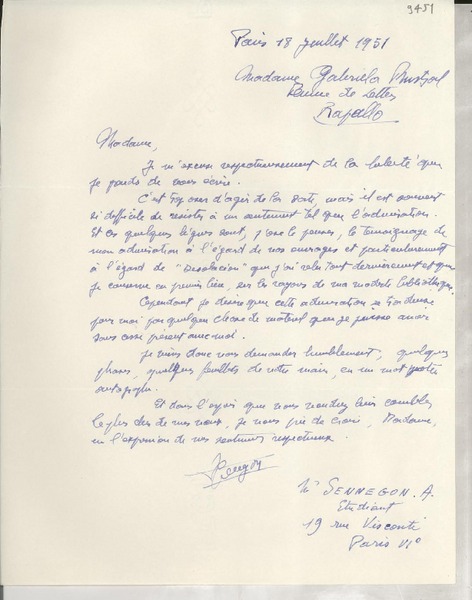 9451
Paris 18 juillet 1951
Madame Gabriela Mistral
Femme de Lettres
Rapallo
Madame,
Je m'excuse respectueusement de la liberté que
je prends de vous écrire.
C'est trop oser d'agir de la sorte, mais il est souvent
si difficile de résister à un sentiment tel que l'admiration.
Et ces quelques lignes sont, j'ose le penser, le témoignage de
mon admiration à l'égard de vos ouvrages et particulièrement
à l'égard de "Desolacion" que j'ai relu tout dernièrement et que
je conserve en premier lieu, sur les rayons de ma modeste bibliothèque.
Cependant je désire que cette admiration se traduise
pour moi par quelque chose de matériel que je puisse avoir
sans cesse présent avec moi.
Je viens donc vous demander humblement, quelques
phrases, quelques feuillets de votre main, en un mot votre
autographe.
Et dans l'espoir que vous voudrez bien combler
le plus cher de mes vœux, je vous prie de croire, Madame,
en l'expression de mes sentiments respectueux.
Sennegon
Mr SENNEGON. A.
Etudiant
19 rue Visconti
Paris VI°